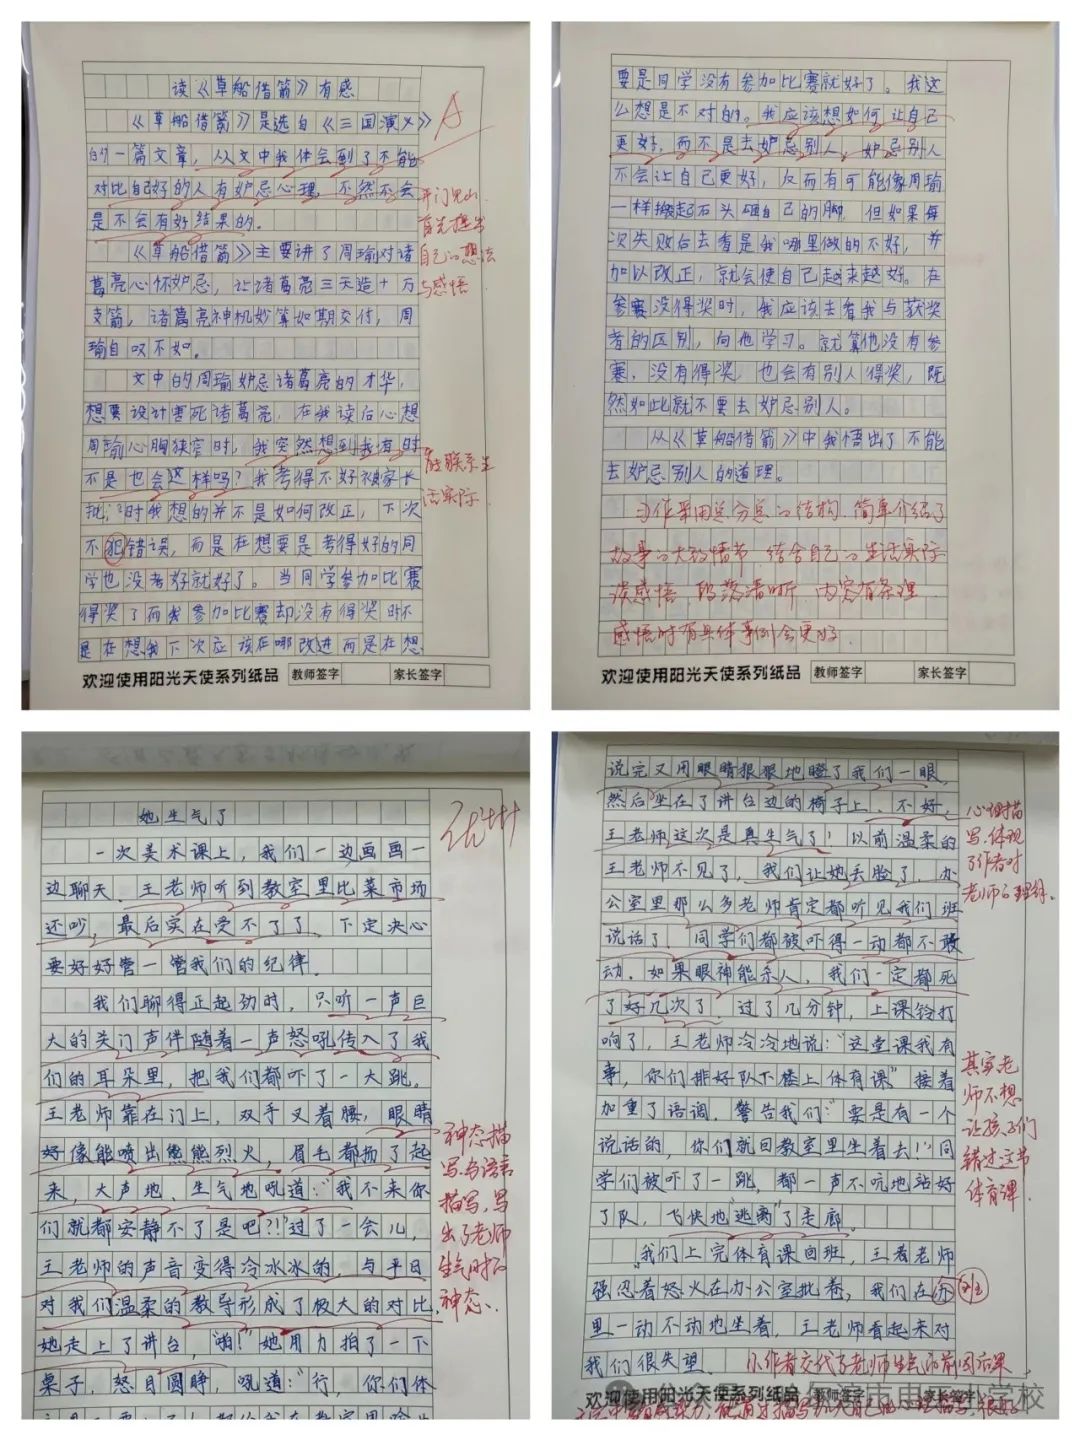 读《草船借箭》有感
《草船借箭》是选自《三国演义》
的一篇文章，从文中我体会到了不能
对比自己好的人有妒忌心理，不然不会
是不会有好结果的。
《草船借箭》主要讲了周瑜对诸
葛亮心怀妒忌，让诸葛亮三天造十万
支箭，诸葛亮神机妙算如期交付，周
瑜自叹不如。
文中的周瑜妒忌诸葛亮的才华，
想要设计害死诸葛亮，在我读后心想
周瑜心胸狭窄时，我突然想到我有时
不是也会这样吗？我考得不好被家长
批评时我想的并不是如何改正，下次
不犯错误，而是在想要是考得好的同
学也没考好就好了。当同学参加比赛
得奖了而我参加比赛却没有得奖时不
是在想我下次应该在哪改进而是在想
A
开门见山
首先提出
自己的想法
与感悟
能联系生
活实际
欢迎使用阳光天使系列纸品 教师签字 家长签字
要是同学没有参加比赛就好了。我这
么想是不对的。我应该想如何让自己
更好，而不是去妒忌别人，妒忌别人
不会让自己更好，反而有可能像周瑜
一样搬起石头砸自己的脚，但如果每
次失败后去看是我哪里做的不好，并
加以改正，就会使自己越来越好。在
参赛没得奖时，我应该去看我与获奖
者的区别，向他学习。就算他没有参
赛，没有得奖，也会有别人得奖，既
然如此就不要去妒忌别人。
从《草船借箭》中我悟出了不能
去妒忌别人的道理。
习作采用总分总的结构，简单介绍了
故事的大致情节，结合自己的生活实际
谈感悟，段落清晰，内容有条理，
感悟时有具体事例会更好。
欢迎使用阳光天使系列纸品 教师签字 家长签字
她生气了
一次美术课上，我们一边画画一
边聊天，王老师听到教室里比菜市场
还吵，最后实在受不了了，下定决心
要好好管一管我们的纪律。
我们聊得正起劲时，只听一声巨
大的关门声伴随着一声怒吼传入了我
们的耳朵里，把我们都吓了一大跳。
王老师靠在门上，双手叉着腰，眼睛
好像能喷出熊熊烈火，眉毛都扬了起
来，大声地、生气地吼道：“我不来你
们就都安静不了是吧？！”过了一会儿，
王老师的声音变得冷冰冰的，与平日
对我们温柔的教导形成了极大的对比，
她走上了讲台，“啪！”她用力拍了一下
桌子，怒目圆睁，吼道：“行，你们体
优++
神态描
写与语言
描写，写
出了老师
生气时的
神态。
说完又用眼睛狠狠地瞪了我们一眼，
然后坐在了讲台边的椅子上，不好，
王老师这次是真生气了！以前温柔的
王老师不见了，我们让她丢脸了，办
公室里那么多老师肯定都听见我们班
说话了，同学们都被吓得一动都不敢
动，如果眼神能杀人，我们一定都死
了好几次了，过了几分钟，上课铃打
响了，王老师冷冷地说：“这堂课我有
事，你们排好队下楼上体育课”接着
加重了语调，警告我们：“要是有一个
说话的，你们就回教室里坐着去！”同
学们被吓了一跳，都一声不吭地站好
了队，飞快地“逃离”了走廊。
我们上完体育课回班，王老师
强忍着怒火在办公室批卷，我们在
班
里一动不动地坐着，王老师看起来对
我们很失望。
心理描
写，体现
了作者对
老师的理解。
其实老
师不想
让孩子们
错过这节
体育课。
小作者交代了老师生气的前因后果
欢迎使用阳光天使系列纸品 教师签字 家长签字